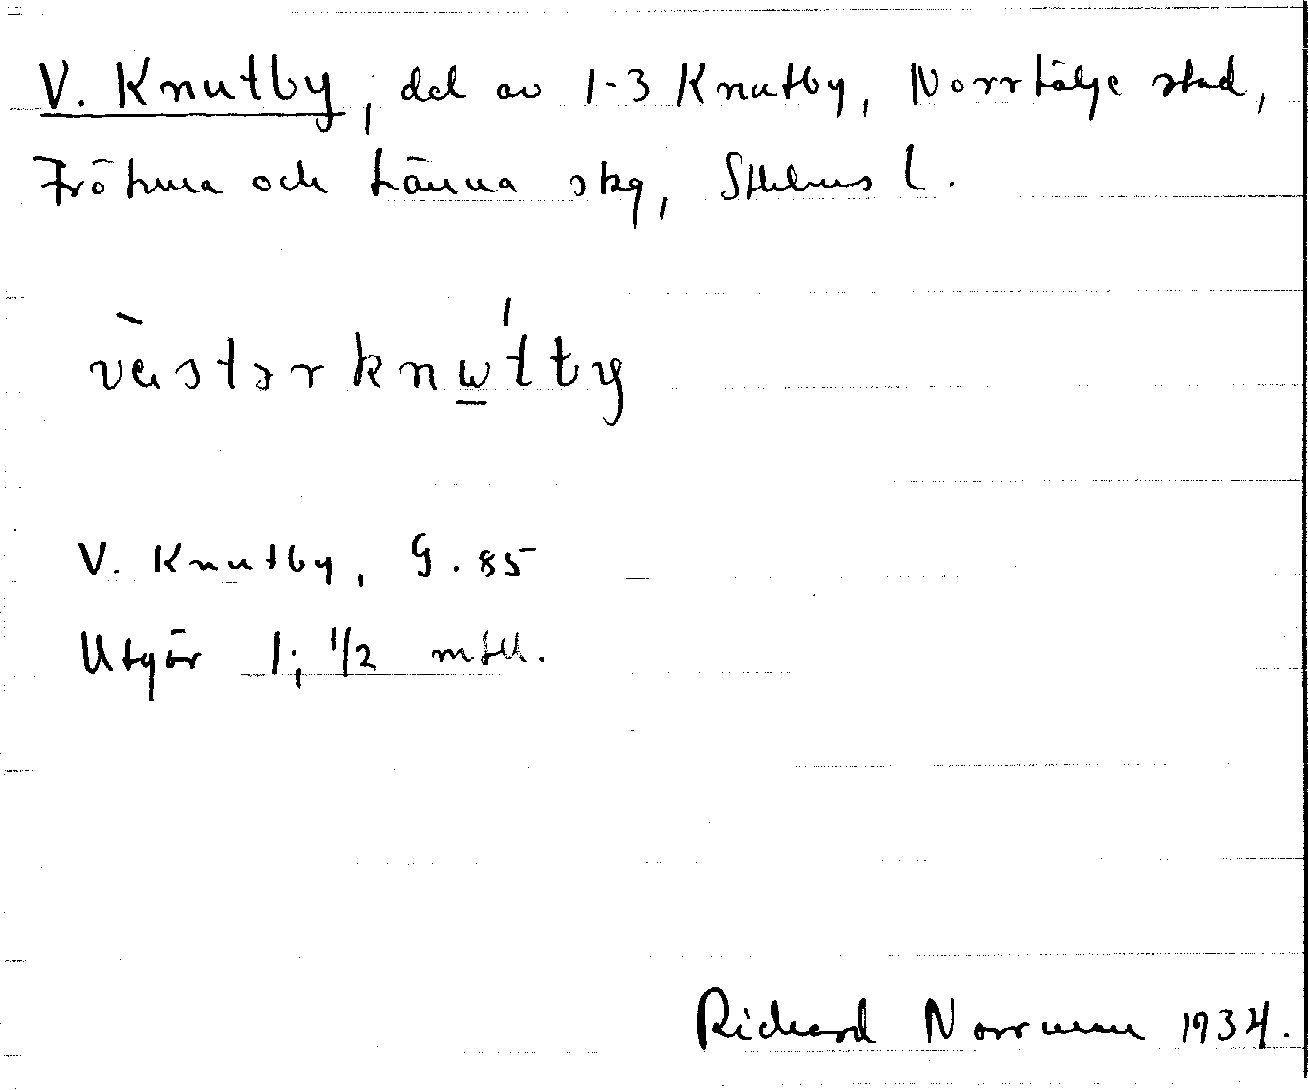 V. Knutby, del av 1-3 Knutby, Norrtälje stad,
Frötuna och Länna skg, Sthlms l.
västərknu̲tby
V. Knutby, G. 85
Utgör 1; 1/2 mtll.
Richard Norrman 1934.